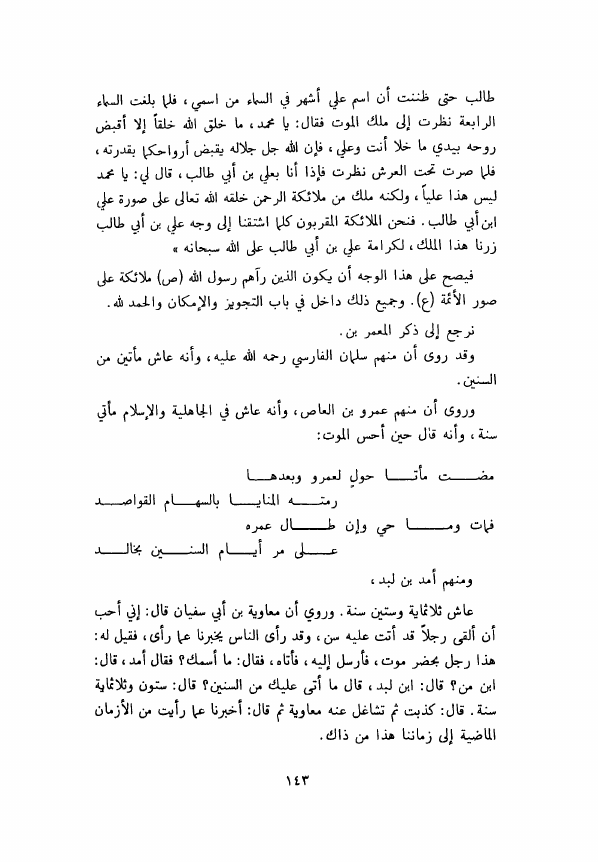 طالب حتى ظننت أن اسم علي أشهر في السماء من اسمي، فلما بلغت السماء
الرابعة نظرت إلى ملك الموت فقال: يا محمد، ما خلق الله خلقاً إلا أقبض
روحه بيدي ما خلا أنت وعلي، فإن الله جل جلاله يقبض أرواحكما بقدرته،
فلما صرت تحت العرش نظرت فإذا أنا بعلي بن أبي طالب، قال لي: يا محمد
ليس هذا علياً، ولكنه ملك من ملائكة الرحمن خلقه الله تعالى على صورة علي
ابن أبي طالب. فنحن الملائكة المقربون كلما اشتقنا إلى وجه علي بن أبي طالب
زرنا هذا الملك، لكرامة علي بن أبي طالب على الله سبحانه »
فيصح على هذا الوجه أن يكون الذين رآهم رسول الله (ص) ملائكة على
صور الأئمة (ع). وجميع ذلك داخل في باب التجويز والإمكان والحمد لله.
نرجع إلى ذكر المعمر بن.
وقد روى أن منهم سلمان الفارسي رحمه الله عليه، وأنه عاش مأتين من
السنين.
وروى أن منهم عمرو بن العاص، وأنه عاش في الجاهلية والإسلام مأتي
سنة، وأنه قال حين أحس الموت:
مضـــت مأتـــا حولٍ لعمرو وبعدهـــا
رمتـــه المنايـــا بالسهـــام القواصـــد
فمات ومـــا حي وإن طـــال عمره
عـــلى مر أيـــام السنـــين بخالـــد
ومنهم أمد بن لبد،
عاش ثلاثماية وستين سنة. وروي أن معاوية بن أبي سفيان قال: إني أحب
أن ألقى رجلاً قد أتت عليه سن، وقد رأى الناس يخبرنا عما رأى، فقيل له:
هذا رجل بحضر موت، فأرسل إليه، فأتاه، فقال: ما أسمك؟ فقال أمد، قال:
ابن من؟ قال: ابن لبد، قال ما أتى عليك من السنين؟ قال: ستون وثلاثماية
سنة. قال: كذبت ثم تشاغل عنه معاوية ثم قال: أخبرنا عما رأيت من الأزمان
الماضية إلى زماننا هذا من ذاك.
١٤٣